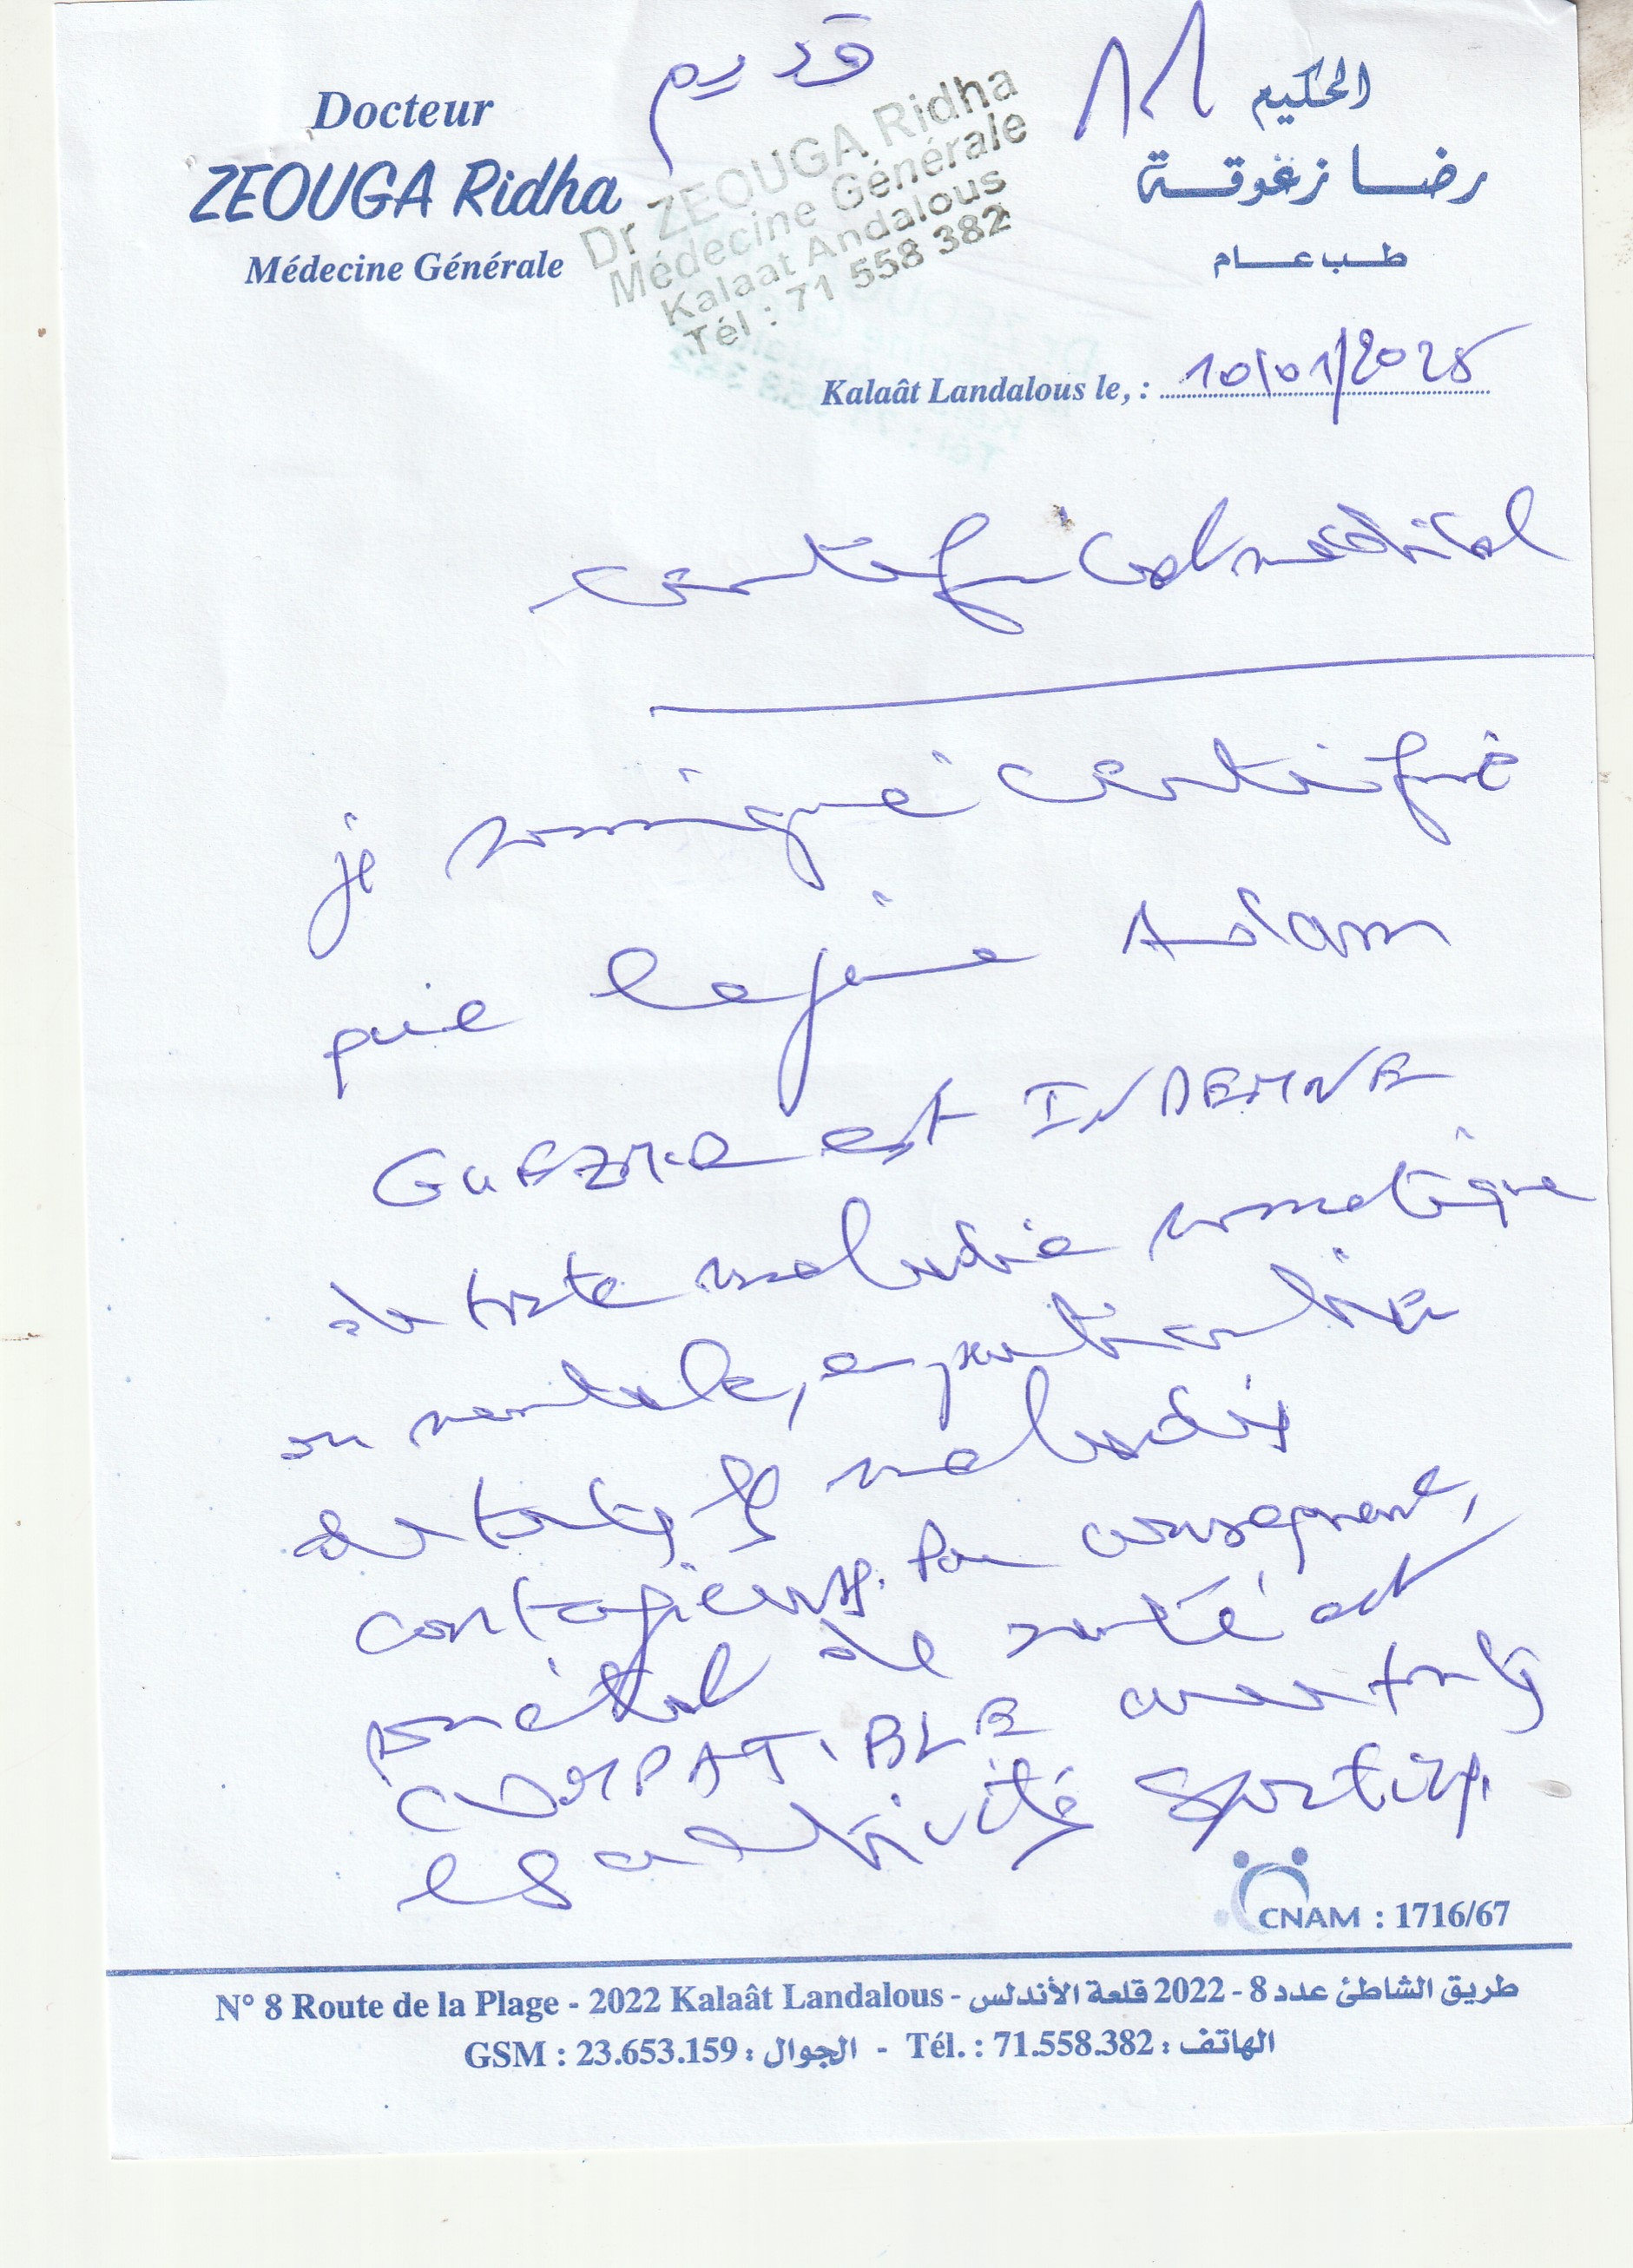 قديم
Docteur
ZEOUGA Ridha
Médecine Générale
الحكيم
رضا زغوقة
طب عام
Dr ZEOUGA Ridha
Médecine Générale
Kalaat Andalous
Tél : 71 558 382
Kalaât Landalous le, : 10/01/2025
certificat médical
je soussigné certifie
que le jeune Adam
est INDEMNE
de toute maladie somatique
ou mentale, en particulier
de toutes les maladies
contagieuses. Par conséquent,
son état de santé est
COMPATIBLE avec toutes
les activités sportives.
CNAM : 1716/67
N° 8 Route de la Plage - 2022 Kalaât Landalous - طريق الشاطئ عدد 8 - 2022 قلعة الأندلس
GSM : 23.653.159 : الجوال - Tél. : 71.558.382 : الهاتف